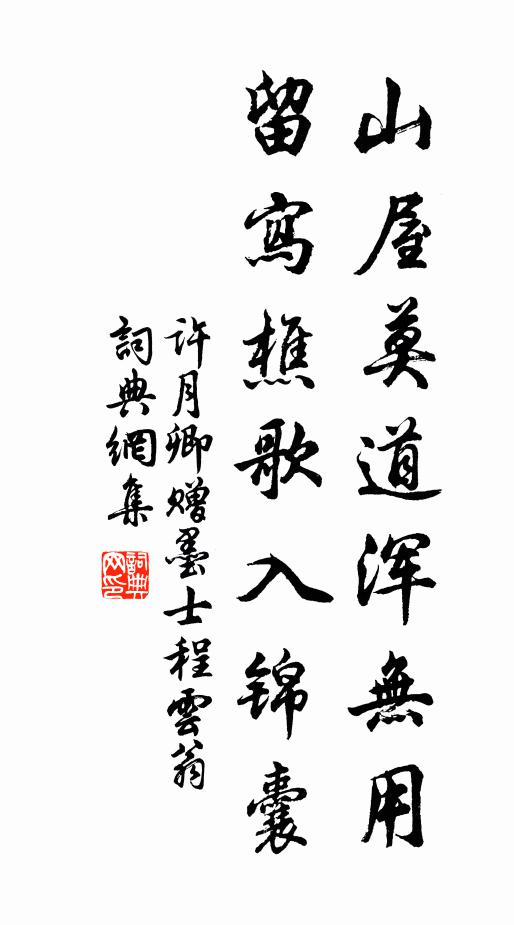 山屋莫道浑無用
留寫樵歌入锦囊
許月卿赠墨士程雲翁
詞典網集
詞典網印